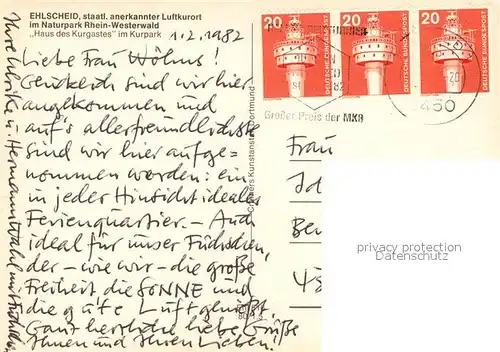 EHLSCHEID, staatl. anerkannter Luftkurort
im Naturpark Rhein-Westerwald
„Haus des Kurgastes" im Kurpark
1.2.1982
Liebe Frau Wöhns!
Glücklich sind wir hier
angekommen und
auf's allerfreundlichste
sind wir hier aufge-
nommen worden: ein
in jeder Hinsicht ideales
Ferienquartier. – Auch
ideal für unser Füchschen,
der – wie wir – die große
Freiheit die SONNE und
die gute Luft genießt.
Ganz herzliche liebe Grüße
Ihnen und Ihren Lieben.
Ihre Ulrike u. Hermann Wahl mit Füchschen
Cramers Kunstanstalt Dortmund
20
20
20
DEUTSCHE BUNDESPOST
DEUTSCHE BUNDESPOST
DEUTSCHE BUNDESPOST
5450
Großer Preis der MKB
Frau
privacy protection
Datenschutz